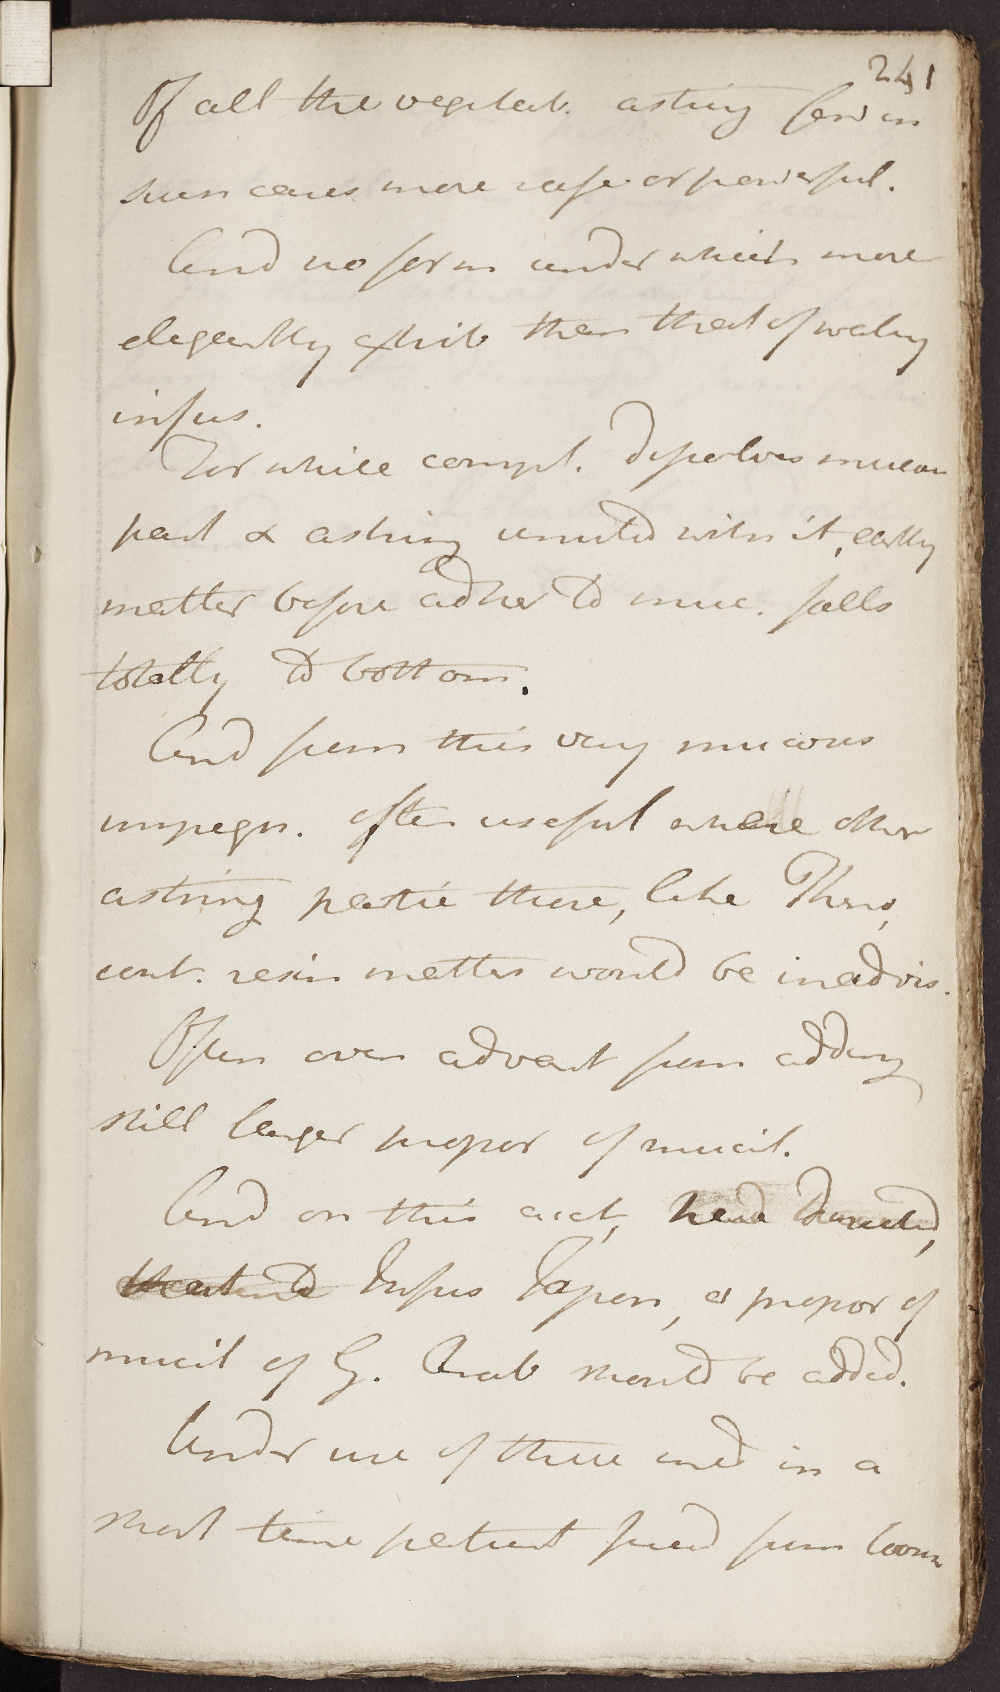 241
Of all the vegetab. astring few in
such cases more safe or powerful.
And no form under which more
elegantly exhib than that of watery
infus.
For while compl. dissolves mucous
part & astring united with it, earthy
matter before adher to muc. falls
totally to bottom.
And from this very mucous
impregn. often useful where other
astring partic those, like Thus,
cont. resin matter would be inadvis.
Often even advant from adding
still larger propor of mucil.
And on this acct, had
Infus Japon, a propor of
mucil of G. Arab should be added.
Under use of these med in a
short time patient freed from loosn